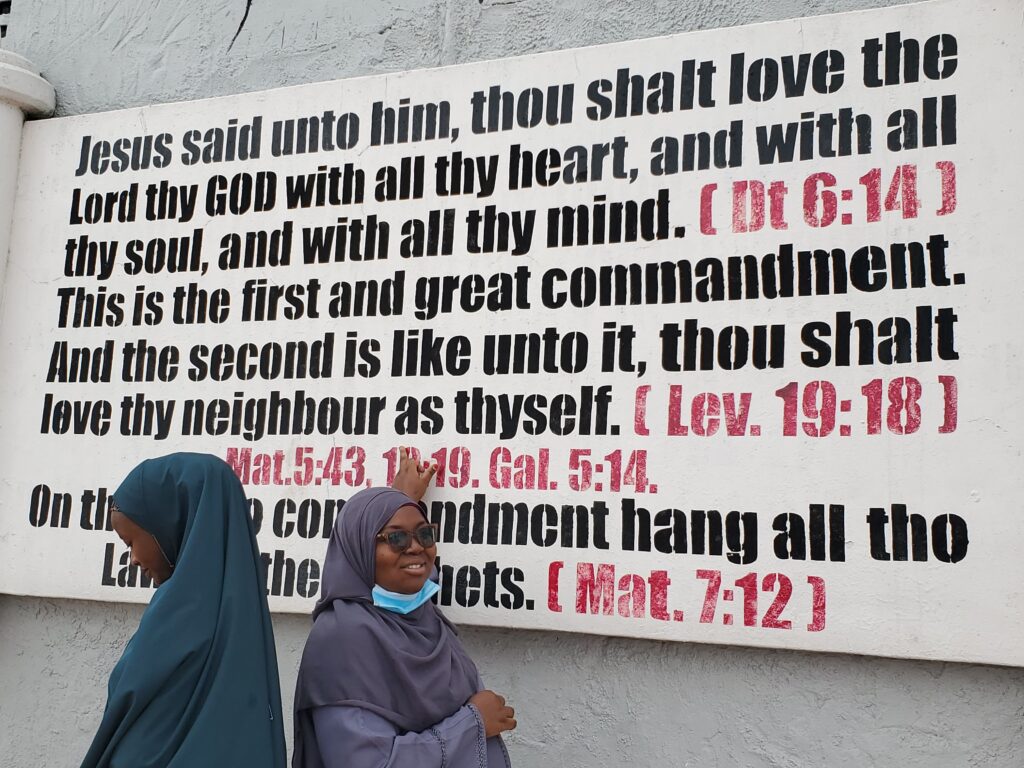 Jesus said unto him, thou shalt love the
Lord thy GOD with all thy heart, and with all
thy soul, and with all thy mind. ( Dt 6:14 )
This is the first and great commandment.
And the second is like unto it, thou shalt
love thy neighbour as thyself. ( Lev. 19:18 )
Mat.5:43, Gal. 5:14.
On hang all tho
( Mat. 7:12 )